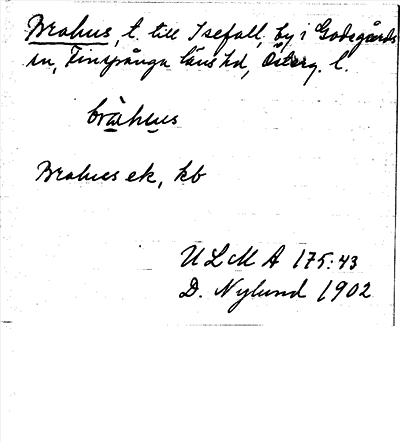 Brahus, t. till Isefall, by i Godegårds
sn, Finspånga läns hd, Österg. l.
bràhus
Brahus ek, kb
ULMA 175:43
D. Nylund 1902